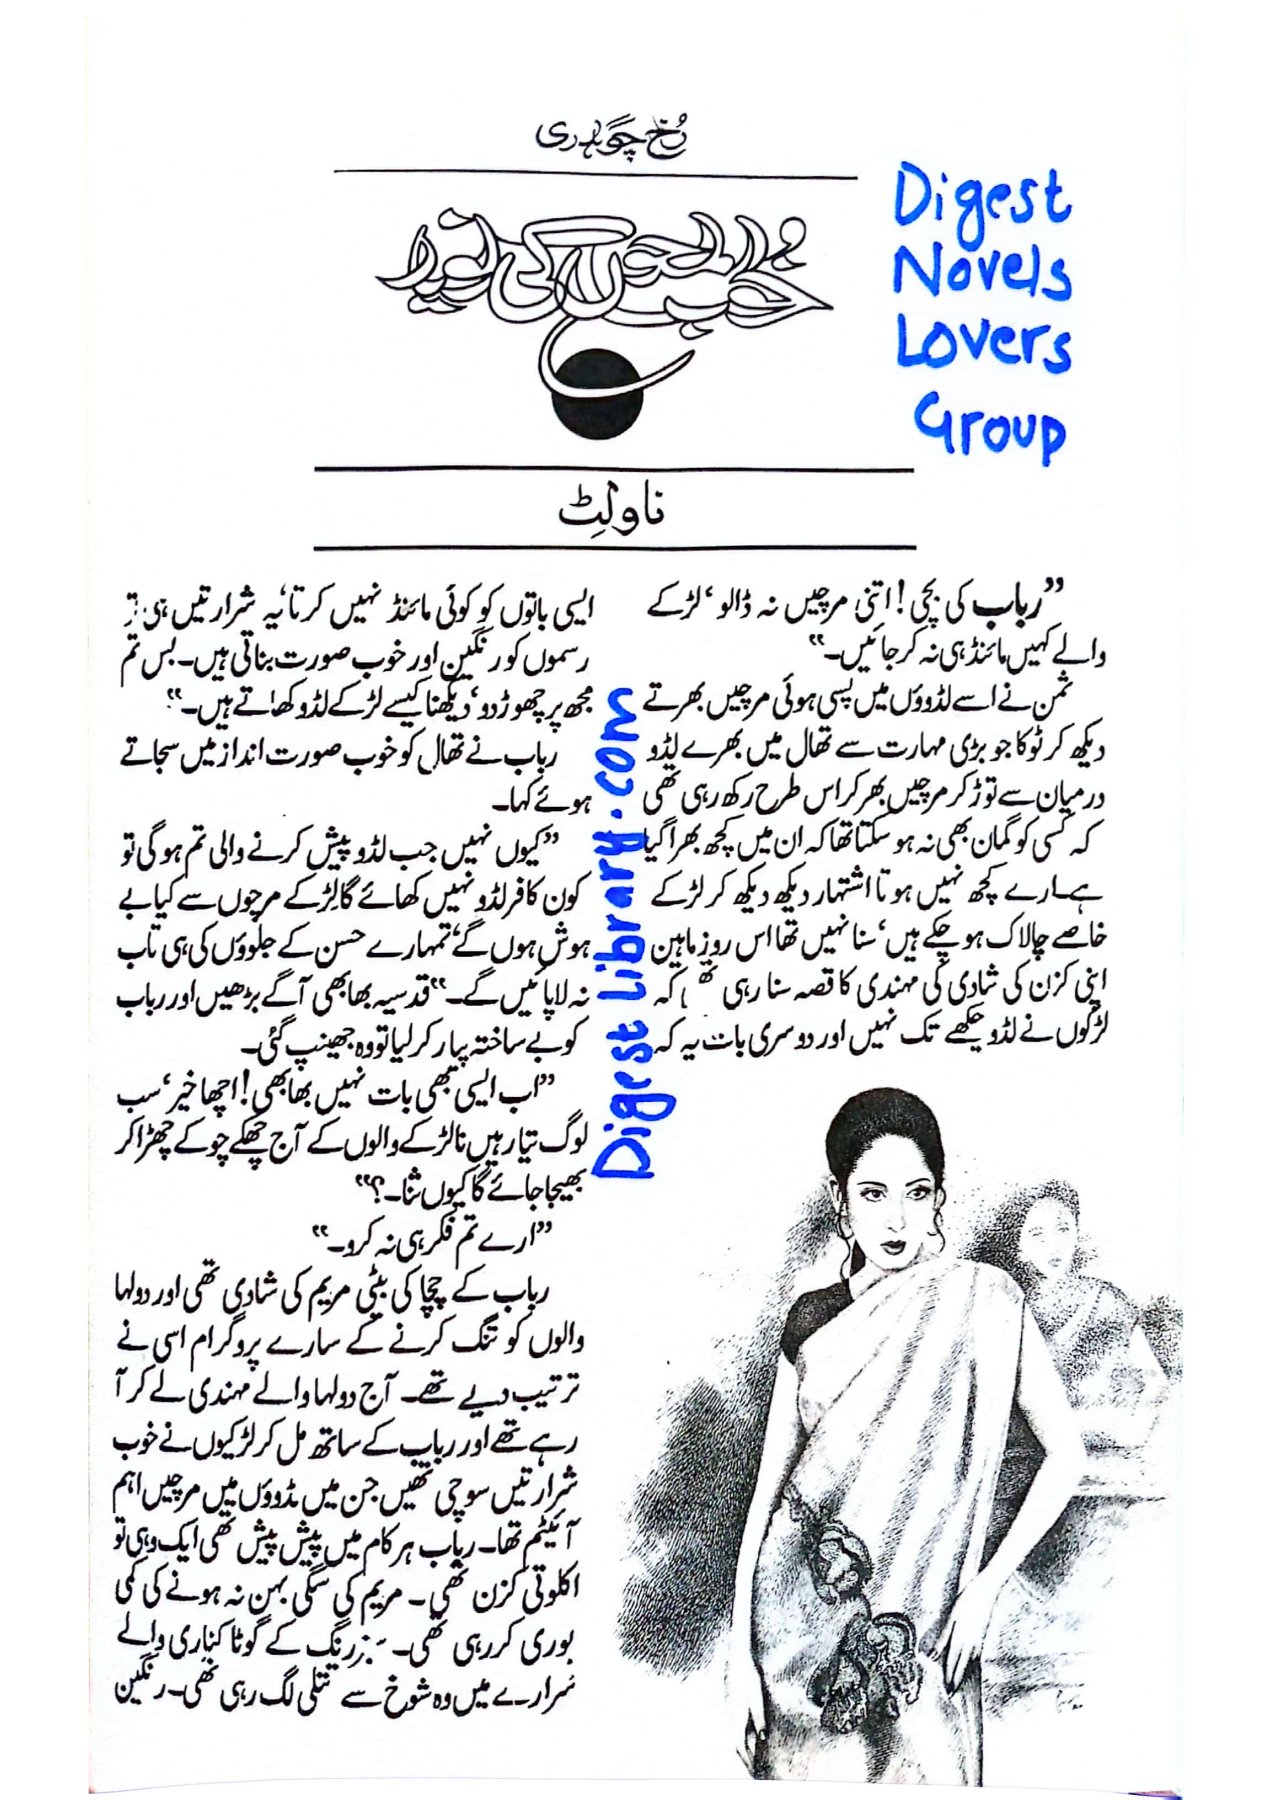 رُخ چوہدری
ناولٹ
Digest
Novels
Lovers
Group
Digest Library.com
”رباب کی بچی! اتنی مرچیں نہ ڈالو، لڑکے
والے کہیں مائنڈ ہی نہ کر جائیں۔“
ثمن نے اسے لڈوؤں میں پسی ہوئی مرچیں بھرتے
دیکھ کر ٹوکا جو بڑی مہارت سے تھال میں بھرے لڈو
درمیان سے توڑ کر مرچیں بھر کر اس طرح رکھ رہی تھی
کہ کسی کو گمان بھی نہ ہو سکتا تھا کہ ان میں کچھ بھرا گیا
ہے۔ ارے کچھ نہیں ہوتا اشتہار دیکھ دیکھ کر لڑکے
خاصے چالاک ہو چکے ہیں، سنا نہیں تھا اس روز ماہین
اپنی کزن کی شادی کی مہندی کا قصہ سنا رہی تھی کہ
لڑکوں نے لڈو چکھے تک نہیں اور دوسری بات یہ کہ
ایسی باتوں کو کوئی مائنڈ نہیں کرتا، یہ شرارتیں ہی تو
رسموں کو رنگین اور خوب صورت بناتی ہیں۔ بس تم
مجھ پر چھوڑ دو، دیکھنا کیسے لڑکے لڈو کھاتے ہیں۔“
رباب نے تھال کو خوب صورت انداز میں سجاتے
ہوئے کہا۔
”کیوں نہیں جب لڈو پیش کرنے والی تم ہو گی تو
کون کافر لڈو نہیں کھائے گا لڑکے مرچوں سے کیا بے
ہوش ہوں گے، تمہارے حسن کے جلوؤں کی ہی تاب
نہ لا پائیں گے۔“ قدسیہ بھابھی آگے بڑھیں اور رباب
کو بے ساختہ پیار کر لیا تو وہ جھینپ گئی۔
”اب ایسی بھی بات نہیں بھابھی! اچھا خیر، سب
لوگ تیار ہیں نا لڑکے والوں کے آج چھکے چوکے چھڑا کر
بھیجا جائے گا کیوں ثنا۔؟“
”ارے تم فکر ہی نہ کرو۔“
رباب کے چچا کی بیٹی مریم کی شادی تھی اور دولہا
والوں کو تنگ کرنے کے سارے پروگرام اسی نے
ترتیب دیے تھے۔ آج دولہا والے مہندی لے کر آ
رہے تھے اور رباب کے ساتھ مل کر لڑکیوں نے خوب
شرارتیں سوچی تھیں جن میں لڈوؤں میں مرچیں اہم
آئیٹم تھا۔ رباب ہر کام میں پیش پیش تھی ایک وہی تو
اکلوتی کزن تھی۔ مریم کی سگی بہن نہ ہونے کی کمی
پوری کر رہی تھی۔ سبز رنگ کے گوٹا کناری والے
شرارے میں وہ شوخ سے تتلی لگ رہی تھی۔ رنگین